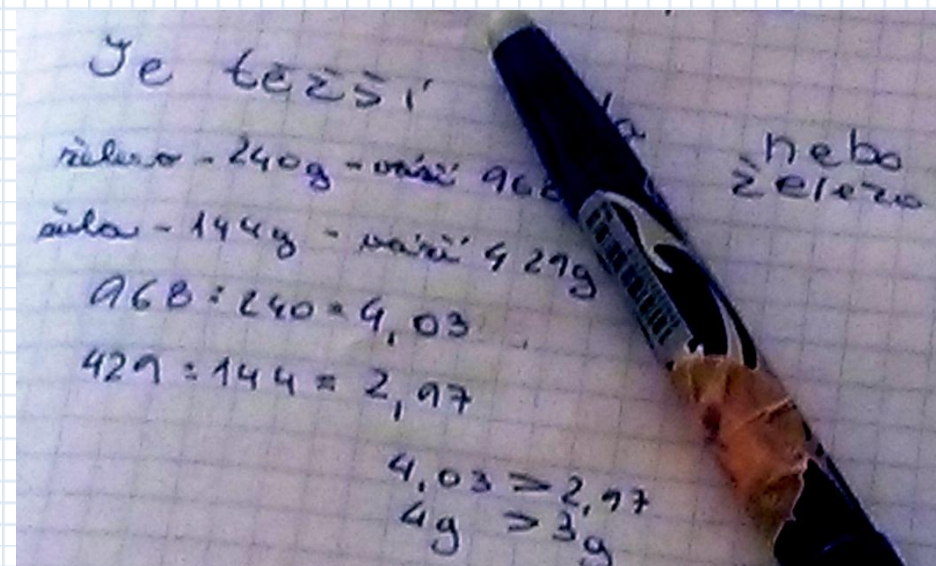 Je těžší nebo
železo
železo - 240g - váží 968
žula - 144g - váží 429g
968 : 240 = 4,03
429 : 144 = 2,97
4,03 > 2,97
4g > 3g